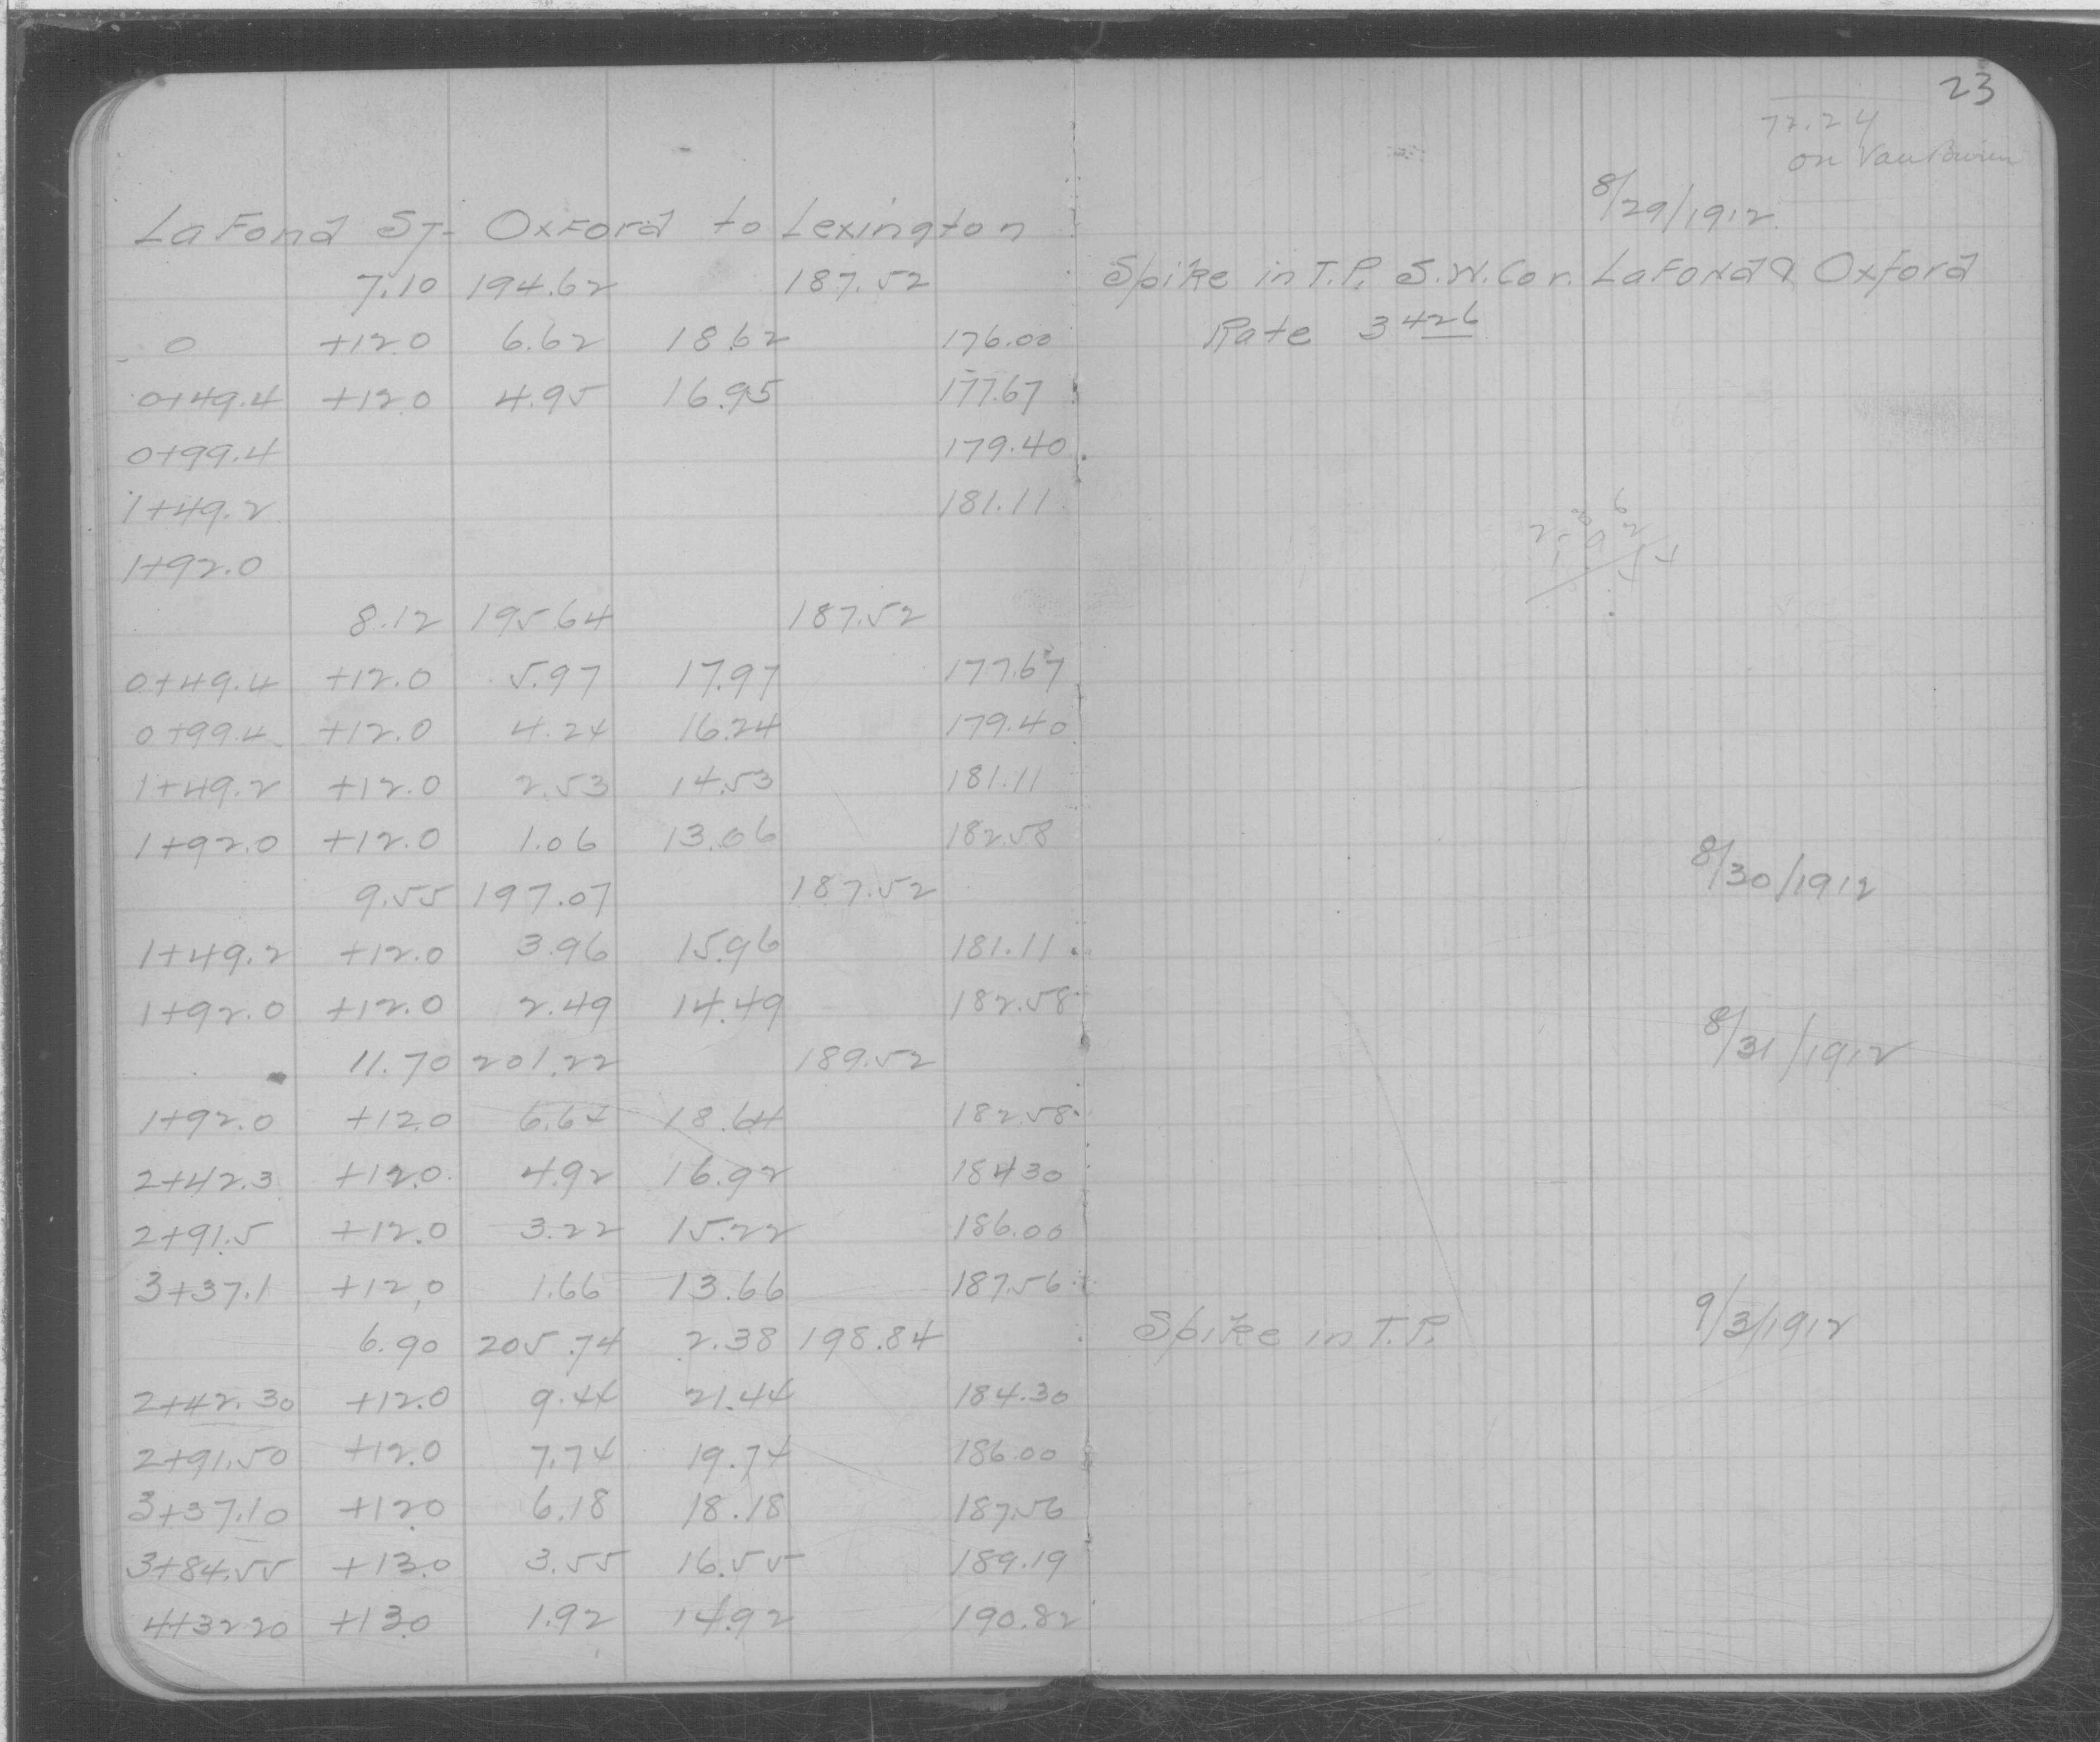 23
72.24
on Van Buren
8/29/1912
LaFond St- Oxford to Lexington
7.10 194.62 187.52 Spike in T.P. S.W. Cor. LaFond & Oxford
0 +12.0 6.62 18.62 176.00 Rate 3426
0+49.4 +12.0 4.95 16.95 177.67
0+99.4 179.40
1+49.2 181.11
1+92.0
8.12 195.64 187.52
0+49.4 +12.0 5.97 17.97 177.67
0+99.4 +12.0 4.24 16.24 179.40
1+49.2 +12.0 2.53 14.53 181.11
1+92.0 +12.0 1.06 13.06 182.58
9.55 197.07 187.52 8/30/1912
1+49.2 +12.0 3.96 15.96 181.11
1+92.0 +12.0 2.49 14.49 182.58
11.70 201.22 189.52 8/31/1912
1+92.0 +12.0 6.64 18.64 182.58
2+42.3 +12.0 4.92 16.92 184.30
2+91.5 +12.0 3.22 15.22 186.00
3+37.1 +12.0 1.66 13.66 187.56
6.90 205.74 2.38 198.84 Spike in T.P. 9/3/1912
2+42.30 +12.0 9.44 21.44 184.30
2+91.50 +12.0 7.74 19.74 186.00
3+37.10 +12.0 6.18 18.18 187.56
3+84.55 +13.0 3.55 16.55 189.19
4+32.20 +13.0 1.92 14.92 190.82